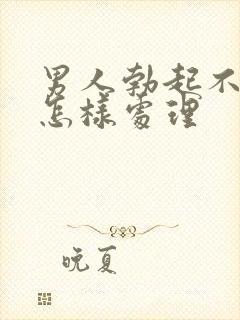 男人勃起不
怎樣處理
晚夏